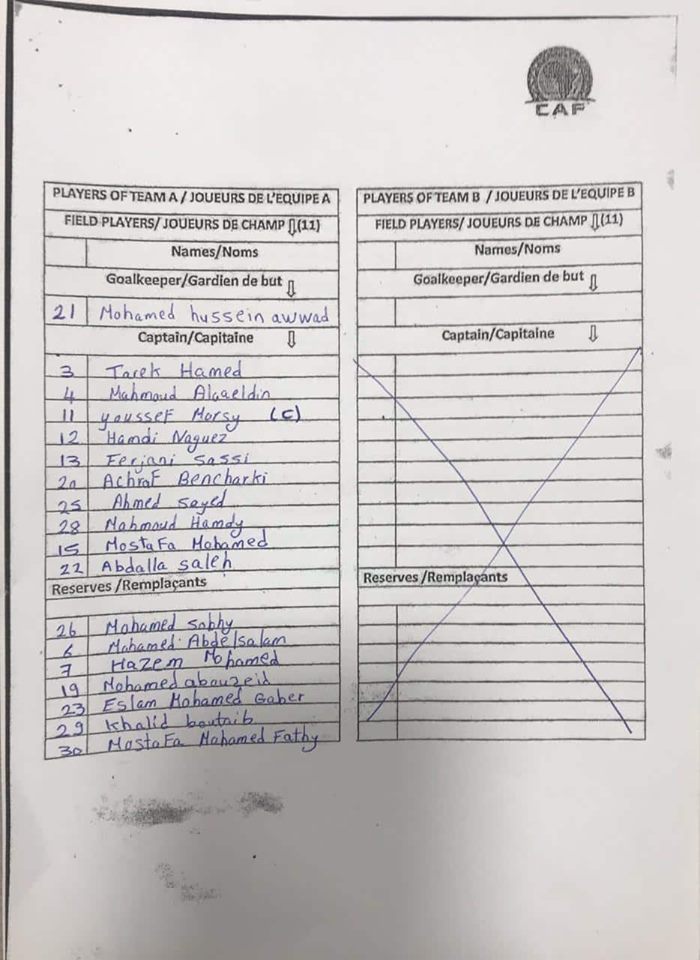 CAF
PLAYERS OF TEAM A / JOUEURS DE L'EQUIPE A
FIELD PLAYERS/ JOUEURS DE CHAMP ⇩(11)
Names/Noms
Goalkeeper/Gardien de but ⇩
21 Mohamed hussein awwad
Captain/Capitaine ⇩
3 Tarek Hamed
4 Mahmoud Alaaeldin
11 youssef Morsy (C)
12 Hamdi Naguez
13 Ferjani Sassi
20 Achraf Bencharki
25 Ahmed sayed
28 Mahmoud Hamdy
15 Mostafa Mohamed
22 Abdalla saleh
Reserves /Remplaçants
26 Mohamed Sobhy
6 Mohamed Abdelsalam
7 Hazem Mohamed
19 Mohamed abouzeid
23 Eslam Mohamed Gaber
29 Khalid boutaib
30 Mostafa Mohamed Fathy
PLAYERS OF TEAM B / JOUEURS DE L'EQUIPE B
FIELD PLAYERS/ JOUEURS DE CHAMP ⇩(11)
Names/Noms
Goalkeeper/Gardien de but ⇩
Captain/Capitaine ⇩
Reserves /Remplaçants